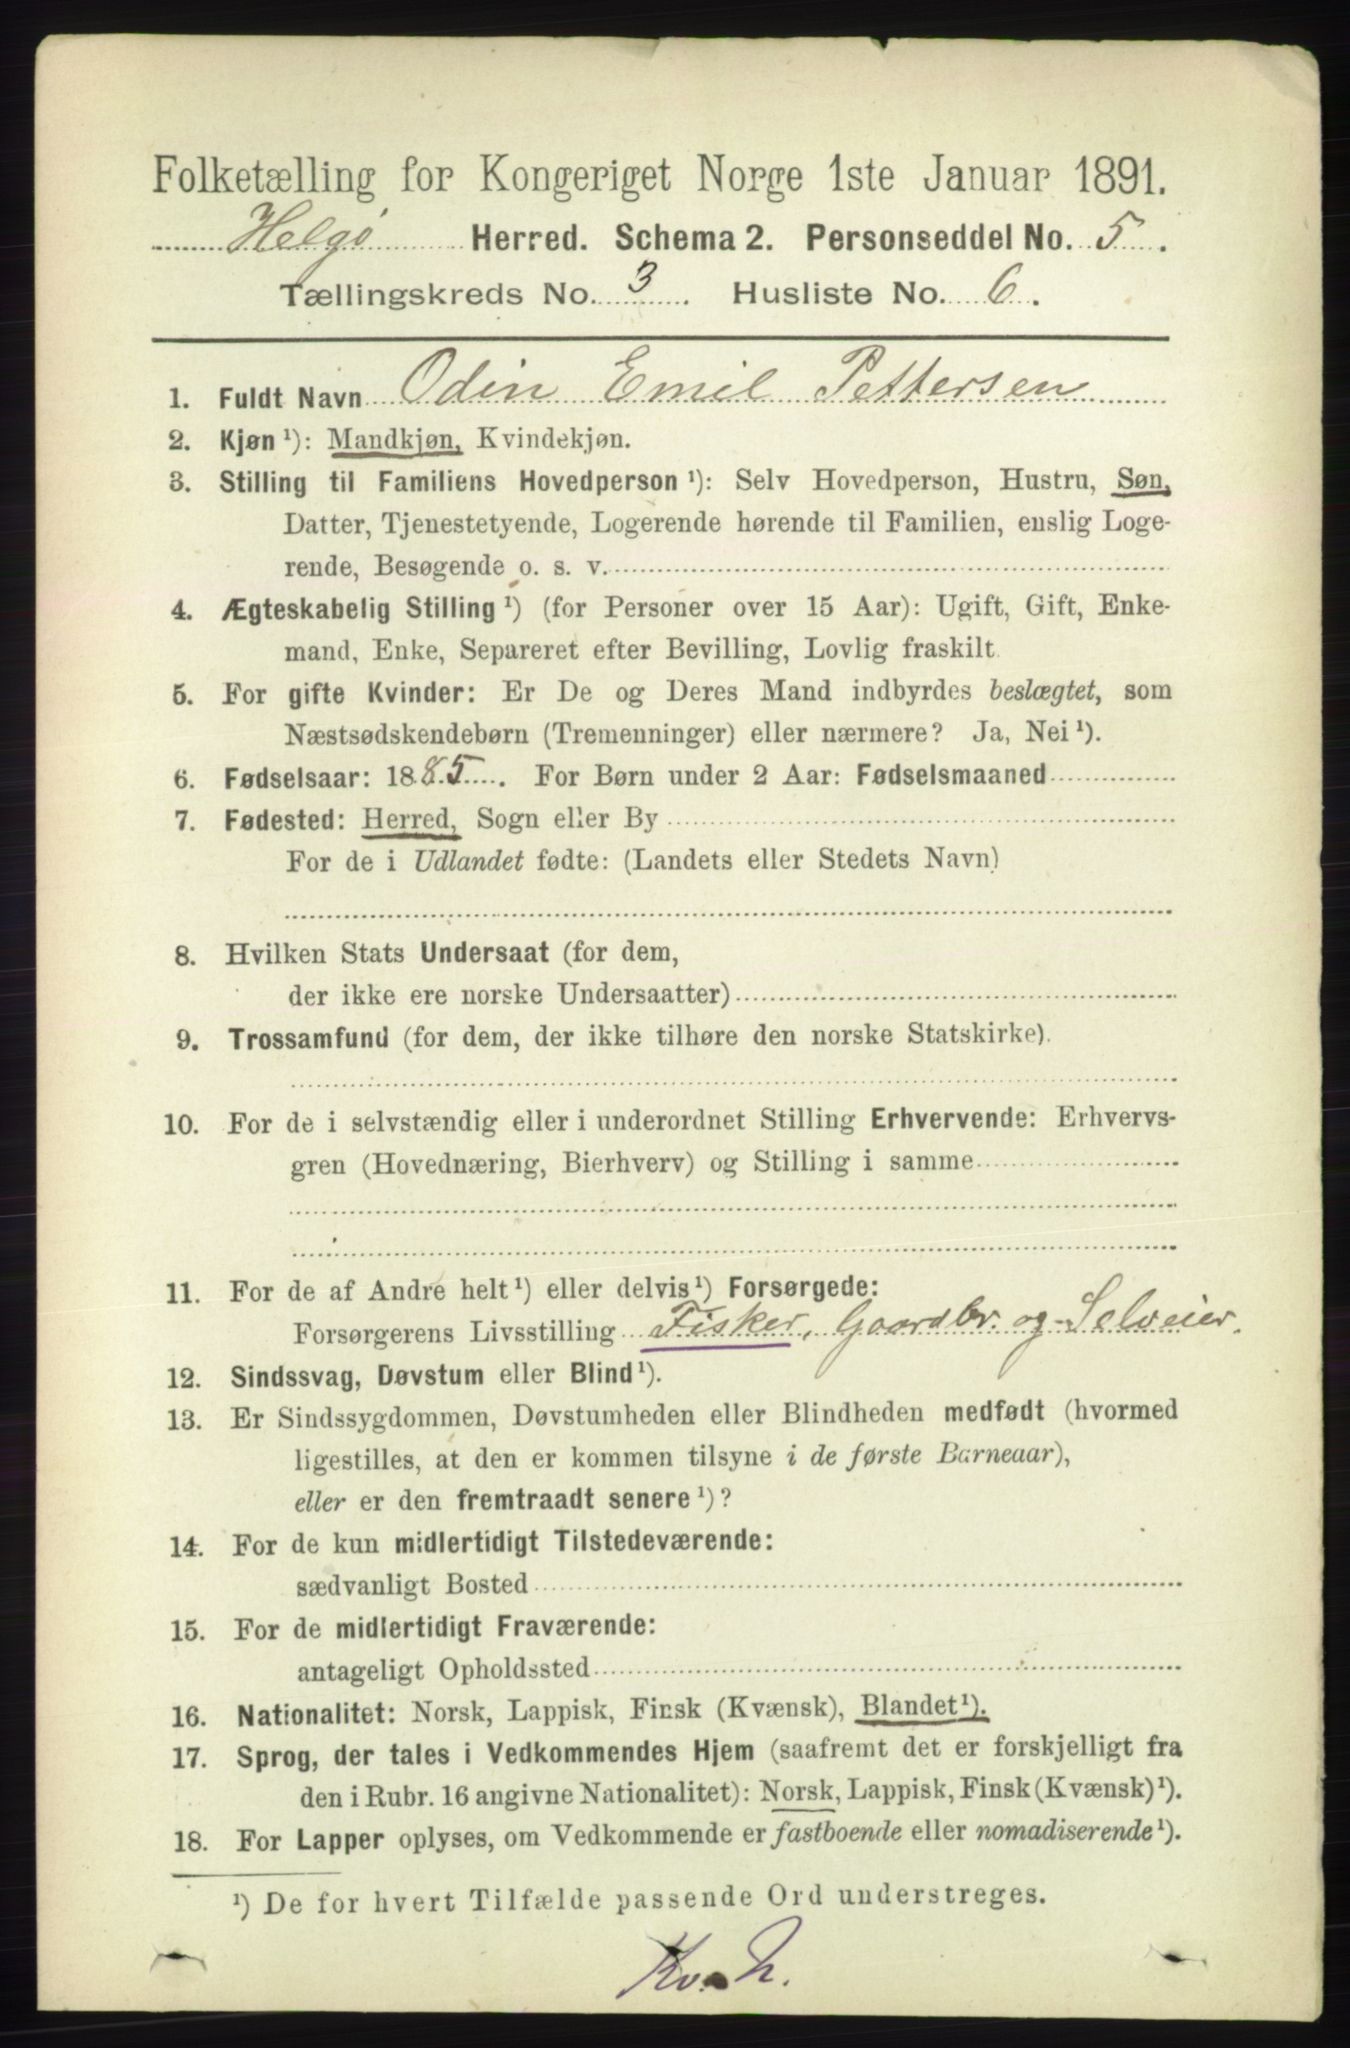 Folketælling for Kongeriget Norge 1ste Januar 1891.
Helgø Herred. Schema 2. Personseddel No. 5.
Tællingskreds No. 3. Husliste No. 6.
1. Fuldt Navn Odin Emil Pettersen
2. Kjøn ¹): Mandkjøn, Kvindekjøn.
3. Stilling til Familiens Hovedperson ¹): Selv Hovedperson, Hustru, Søn,
Datter, Tjenestetyende, Logerende hørende til Familien, enslig Loge-
rende, Besøgende o. s. v.
4. Ægteskabelig Stilling ¹) (for Personer over 15 Aar): Ugift, Gift, Enke-
mand, Enke, Separeret efter Bevilling, Lovlig fraskilt.
5. For gifte Kvinder: Er De og Deres Mand indbyrdes beslægtet, som
Næstsødskendebørn (Tremenninger) eller nærmere? Ja, Nei ¹).
6. Fødselsaar: 1885. For Børn under 2 Aar: Fødselsmaaned
7. Fødested: Herred, Sogn eller By
For de i Udlandet fødte: (Landets eller Stedets Navn)
8. Hvilken Stats Undersaat (for dem,
der ikke ere norske Undersaatter)
9. Trossamfund (for dem, der ikke tilhøre den norske Statskirke).
10. For de i selvstændig eller i underordnet Stilling Erhvervende: Erhvervs-
gren (Hovednæring, Bierhverv) og Stilling i samme
11. For de af Andre helt ¹) eller delvis ¹) Forsørgede:
Forsørgerens Livsstilling Fisker, Gaardbr. og Selveier.
12. Sindssvag, Døvstum eller Blind ¹).
13. Er Sindssygdommen, Døvstumheden eller Blindheden medfødt (hvormed
ligestilles, at den er kommen tilsyne i de første Barneaar),
eller er den fremtraadt senere ¹)?
14. For de kun midlertidigt Tilstedeværende:
sædvanligt Bosted
15. For de midlertidigt Fraværende:
antageligt Opholdssted
16. Nationalitet: Norsk, Lappisk, Finsk (Kvænsk), Blandet ¹).
17. Sprog, der tales i Vedkommendes Hjem (saafremt det er forskjelligt fra
den i Rubr. 16 angivne Nationalitet): Norsk, Lappisk, Finsk (Kvænsk) ¹).
18. For Lapper oplyses, om Vedkommende er fastboende eller nomadiserende ¹).
¹) De for hvert Tilfælde passende Ord understreges.
Kv. N.